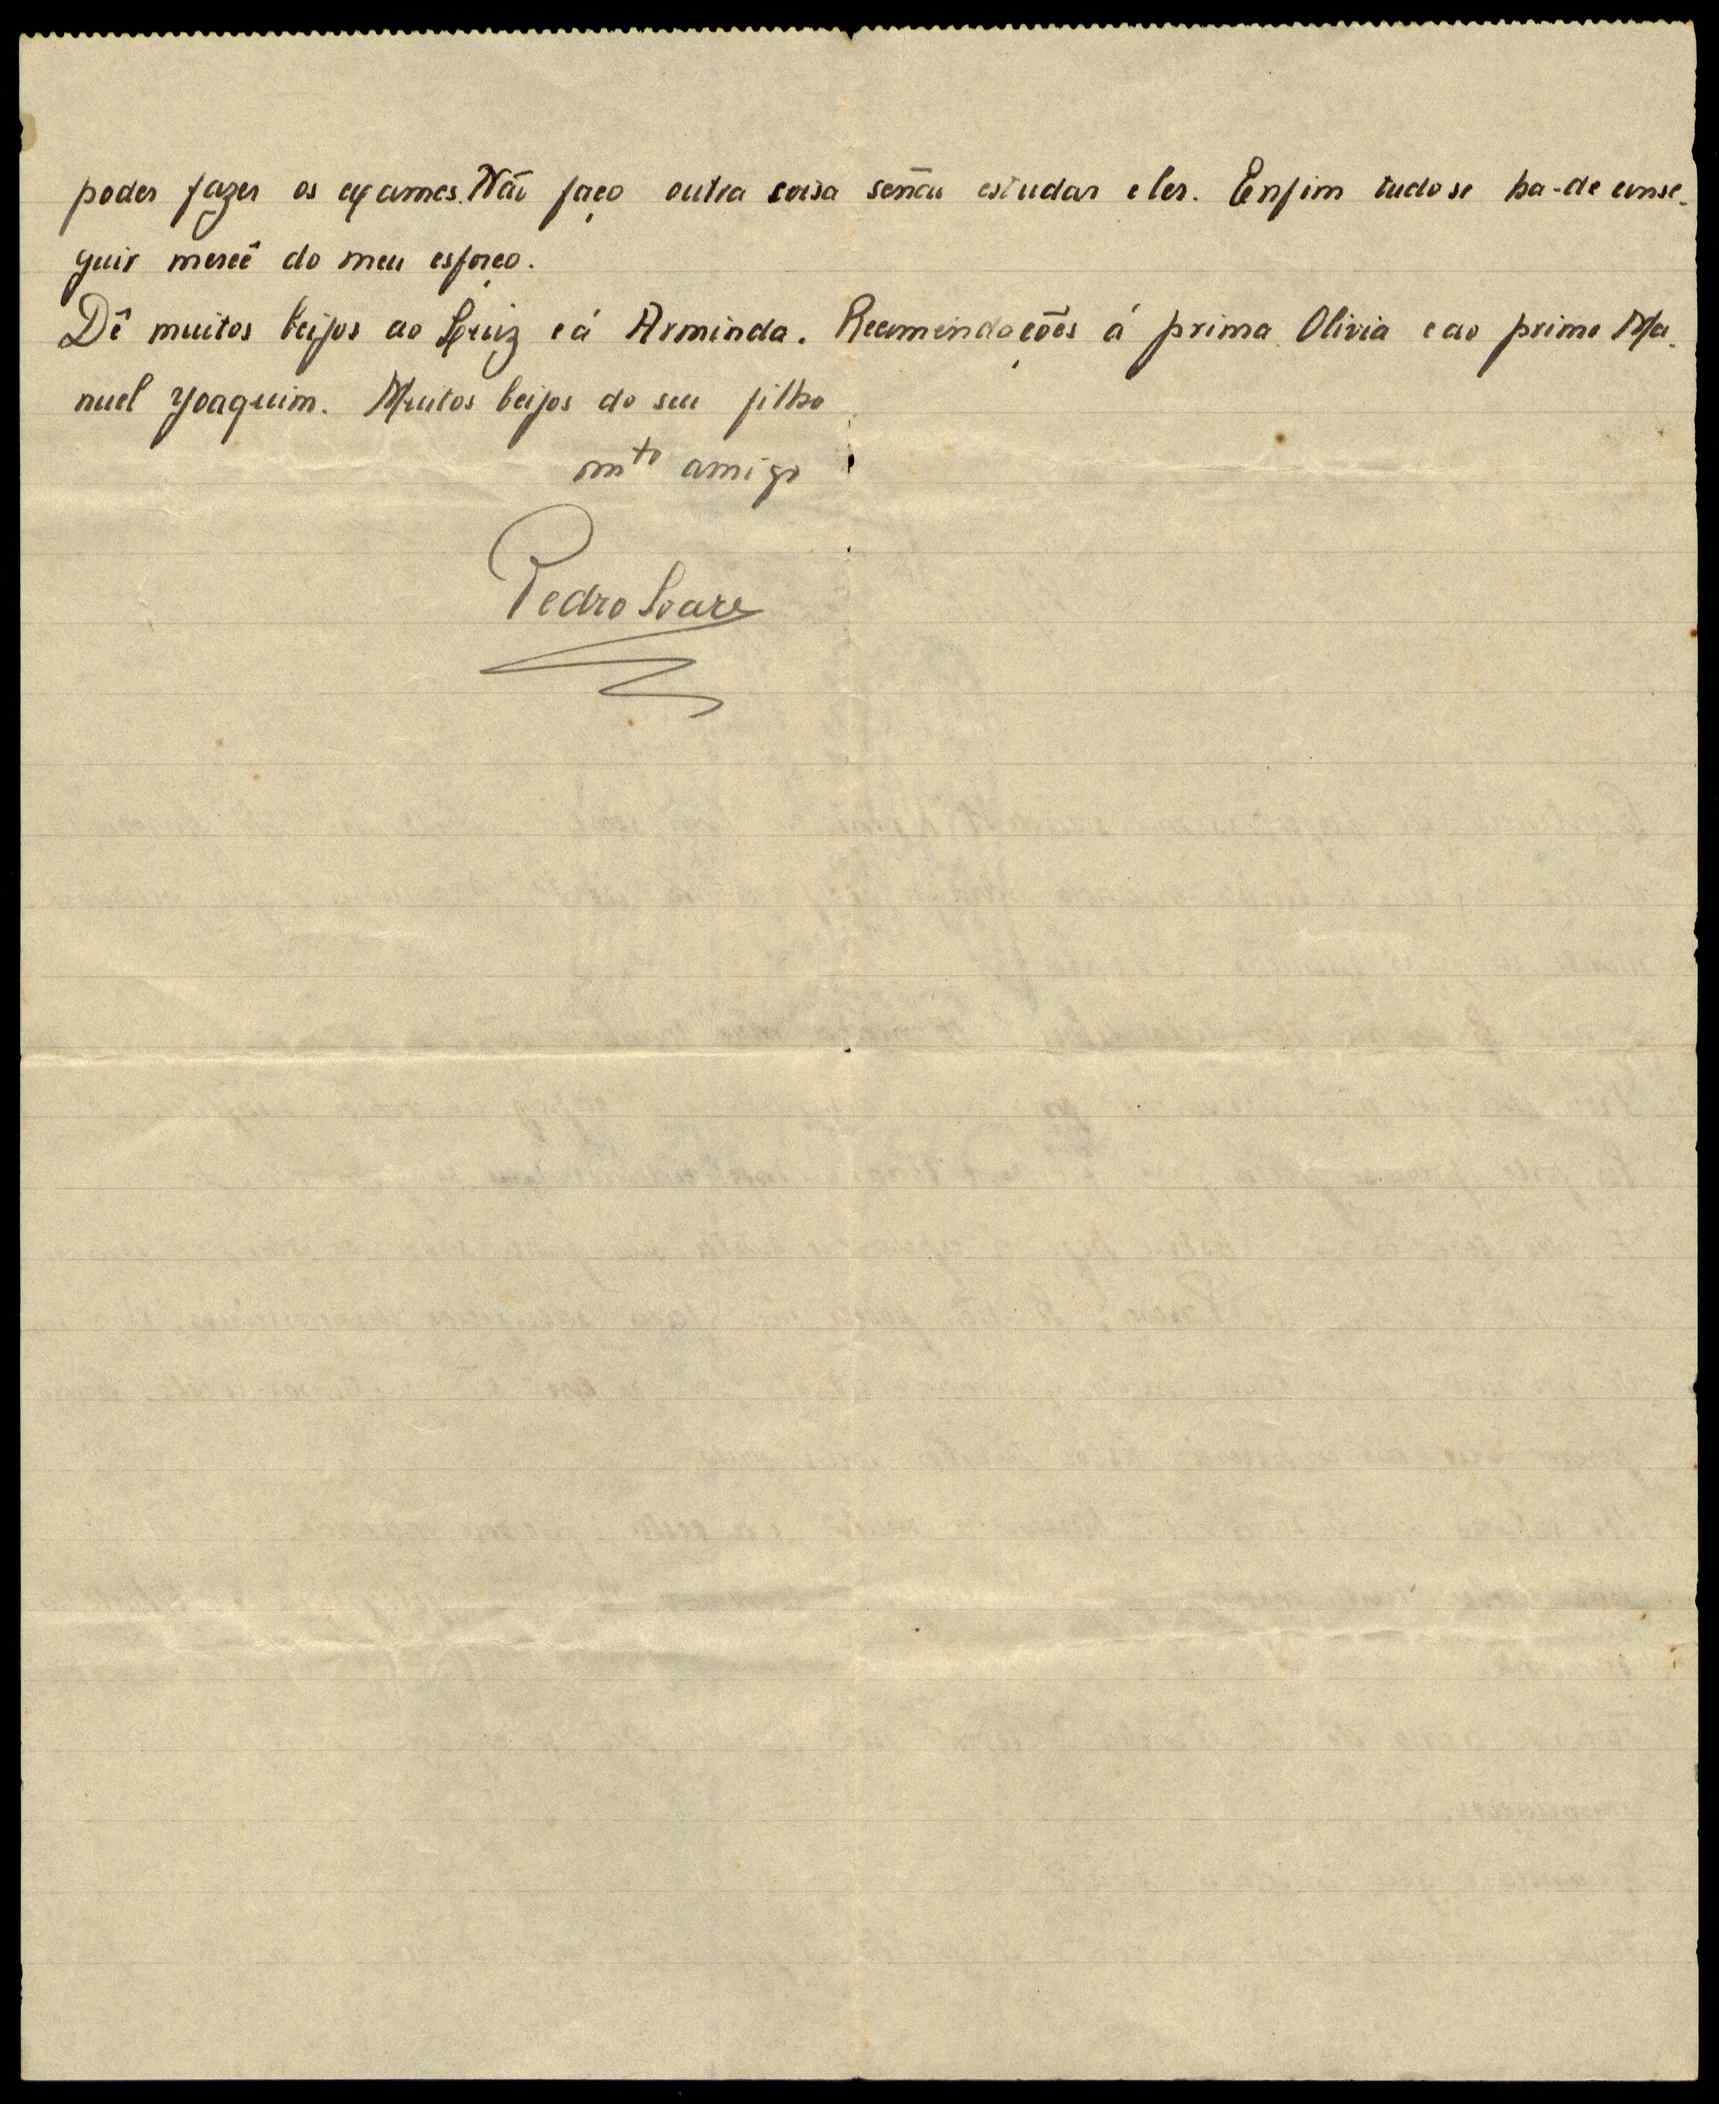 poder fazer os exames. Não faço outra coisa senão estudar e ler. Enfim tudo se ha-de conse-
guir mercê do meu esforço.
Dê muitos beijos ao Luiz e á Arminda. Recomendações á prima Olivia e ao primo Ma-
nuel Joaquim. Muitos beijos do seu filho
mto amigo
Pedro Soares